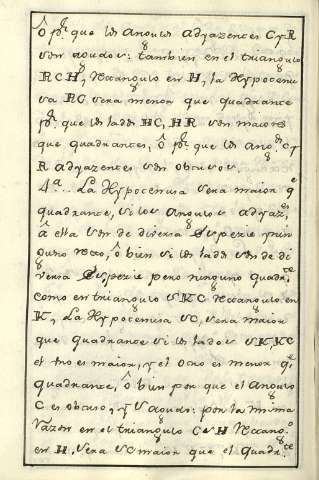 ô pr. que los angulos adyazentes C y R
son agudos: tambien en el triangulo
RCH, rectangulo en H, la Hypotenu
sa RC sera menor que quadrante
pr. que los lados HC, HR son maiores
que quadrantes, ô pr. que los ang.os C y
R adyazentes son obtusos.
4.a ... La Hypotenusa sera maior q.e
quadrante, si los angulos adyaz.
â ella son de diversa especie y nin
guno recto, ô bien si los lados son de di
versa especie pero ninguno quadr.te
como en triangulo SKC rectangulo en
K, La Hypotenusa SC, sera maior
que quadrante si los lados SK KC
el uno es maior, y el otro es menor q.e
quadrante, ô bien por que el angulo
C es obtuso, y S agudo: por la misma
razon en el triangulo CSH rectang.o
en H, sera SC maior que el quadr.te